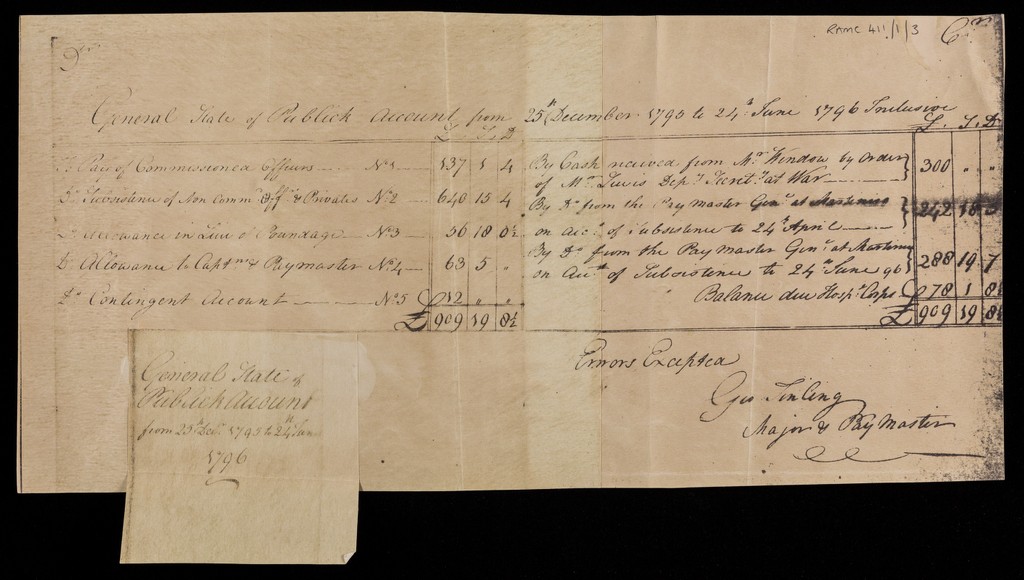 RAMC 411/1/3
Dr
Cr
General State of Publick Account from 25th December 1795 to 24th June 1796 Inclusive
£ S D £ S D
To Pay of Commissioned Officers No 1 137 1 4
By Cash received from Mr Window by Order
of Mr Lewis Depy Secrety at War 300 " "
To Subsistence of Non Commd Offrs & Privates No 2 640 15 4
By Do from the Pay Master Genl at
on Acct of Subsistence to 24th April 242 18
Allowance in Lieu of Poundage No 3 56 18 0½
By Do from the Pay Master Genl at
on Acct of Subsistence to 24th June 96 288 19 7
To Allowance to Captns & Paymaster No 4 63 5 "
To Contingent Account No 5 012 " "
Balance due Hospl Corps 078 1 8½
£ 909 19 8½
£ 909 19 8½
Errors Excepted
Geo Tinling
Major & Pay Master
General State of
Publick Account
from 25th Decr 1795 to 24th
1796